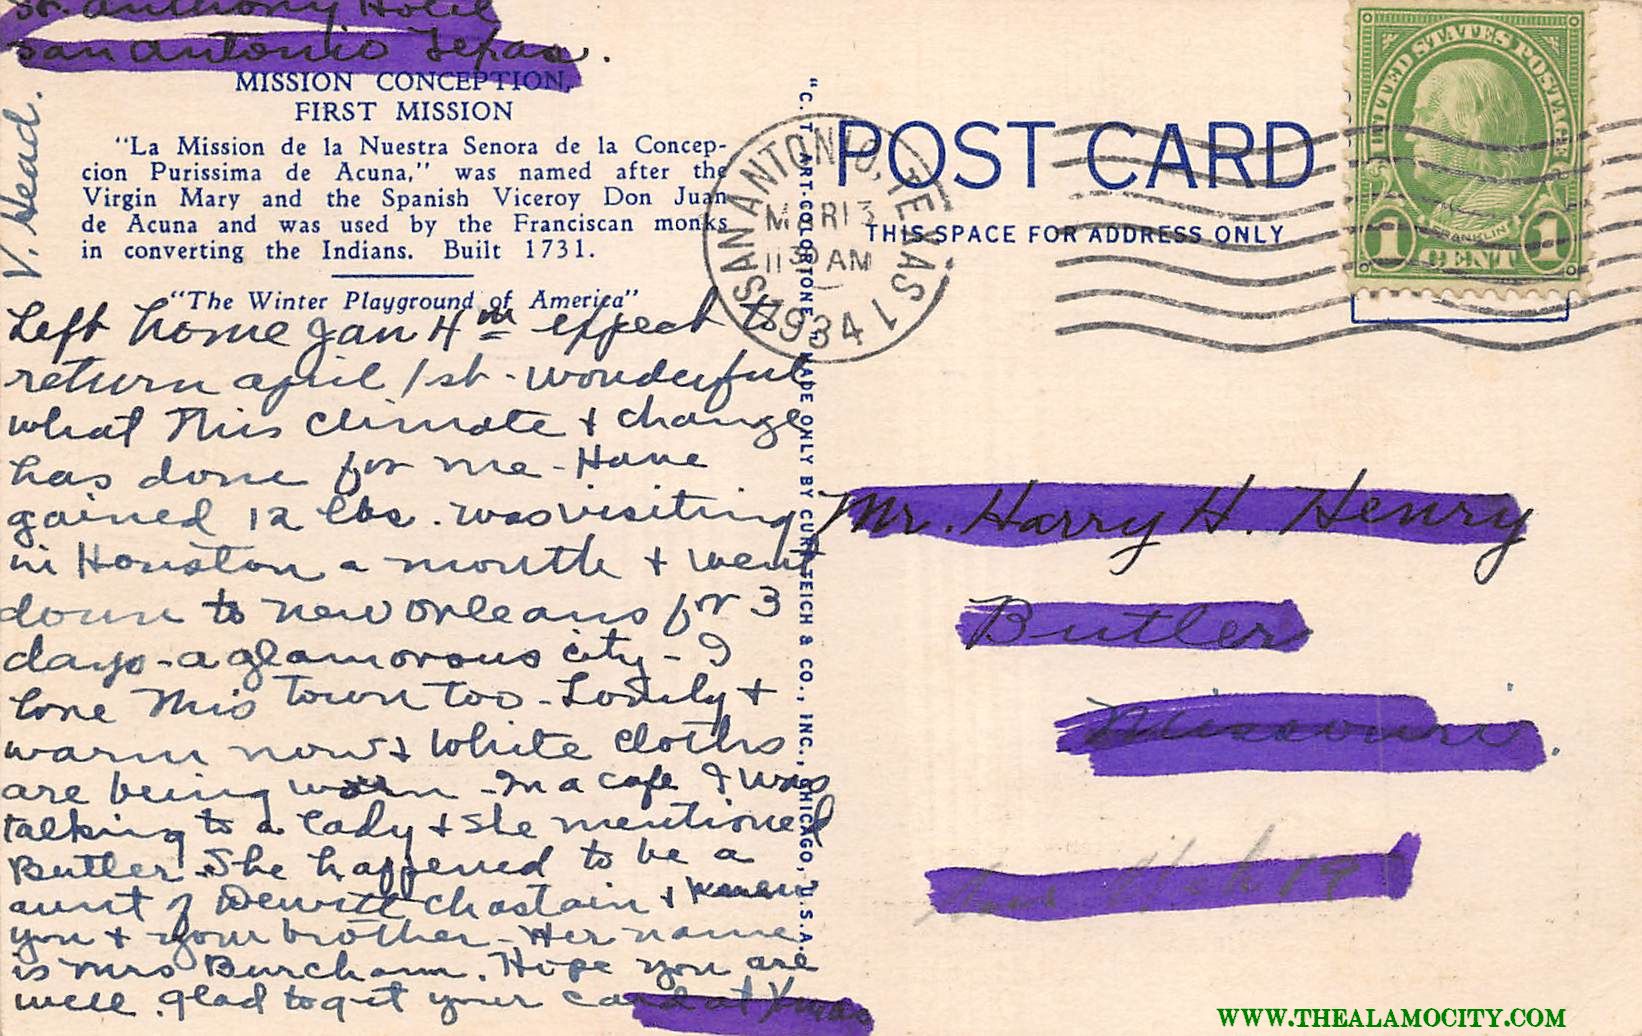 St. Anthony Hotel
San Antonio Texas.
MISSION CONCEPTION,
FIRST MISSION
"La Mission de la Nuestra Senora de la Concep-
cion Purissima de Acuna," was named after the
Virgin Mary and the Spanish Viceroy Don Juan
de Acuna and was used by the Franciscan monks
in converting the Indians. Built 1731.
"The Winter Playground of America"
V. Head.
Left home Jan 4th expect to
return april 1st - wonderful
what this climate + change
has done for me - Have
gained 12 lbs. was visiting
in Houston a month + went
down to new orleans for 3
days - a glamorous city - I
love this town too - Lovely +
warm now + white cloths
are being worn - In a cafe I was
talking to a lady + she mentioned
Butler. She happened to be a
aunt of Dewitt Chastain + knew
you + your brother - Her name
is Mrs Burcham. Hope you are
well. glad to get your card at Xmas
"C. T. ART-COLORTONE" MADE ONLY BY CURT TEICH & CO., INC., CHICAGO, U.S.A.
POST CARD
THIS SPACE FOR ADDRESS ONLY
SAN ANTONIO, TEXAS 1
MAR 13
1130 AM
1934
UNITED STATES POSTAGE
FRANKLIN
1 CENT 1
Mr. Harry H. Henry
Butler
Missouri.
19
WWW.THEALAMOCITY.COM